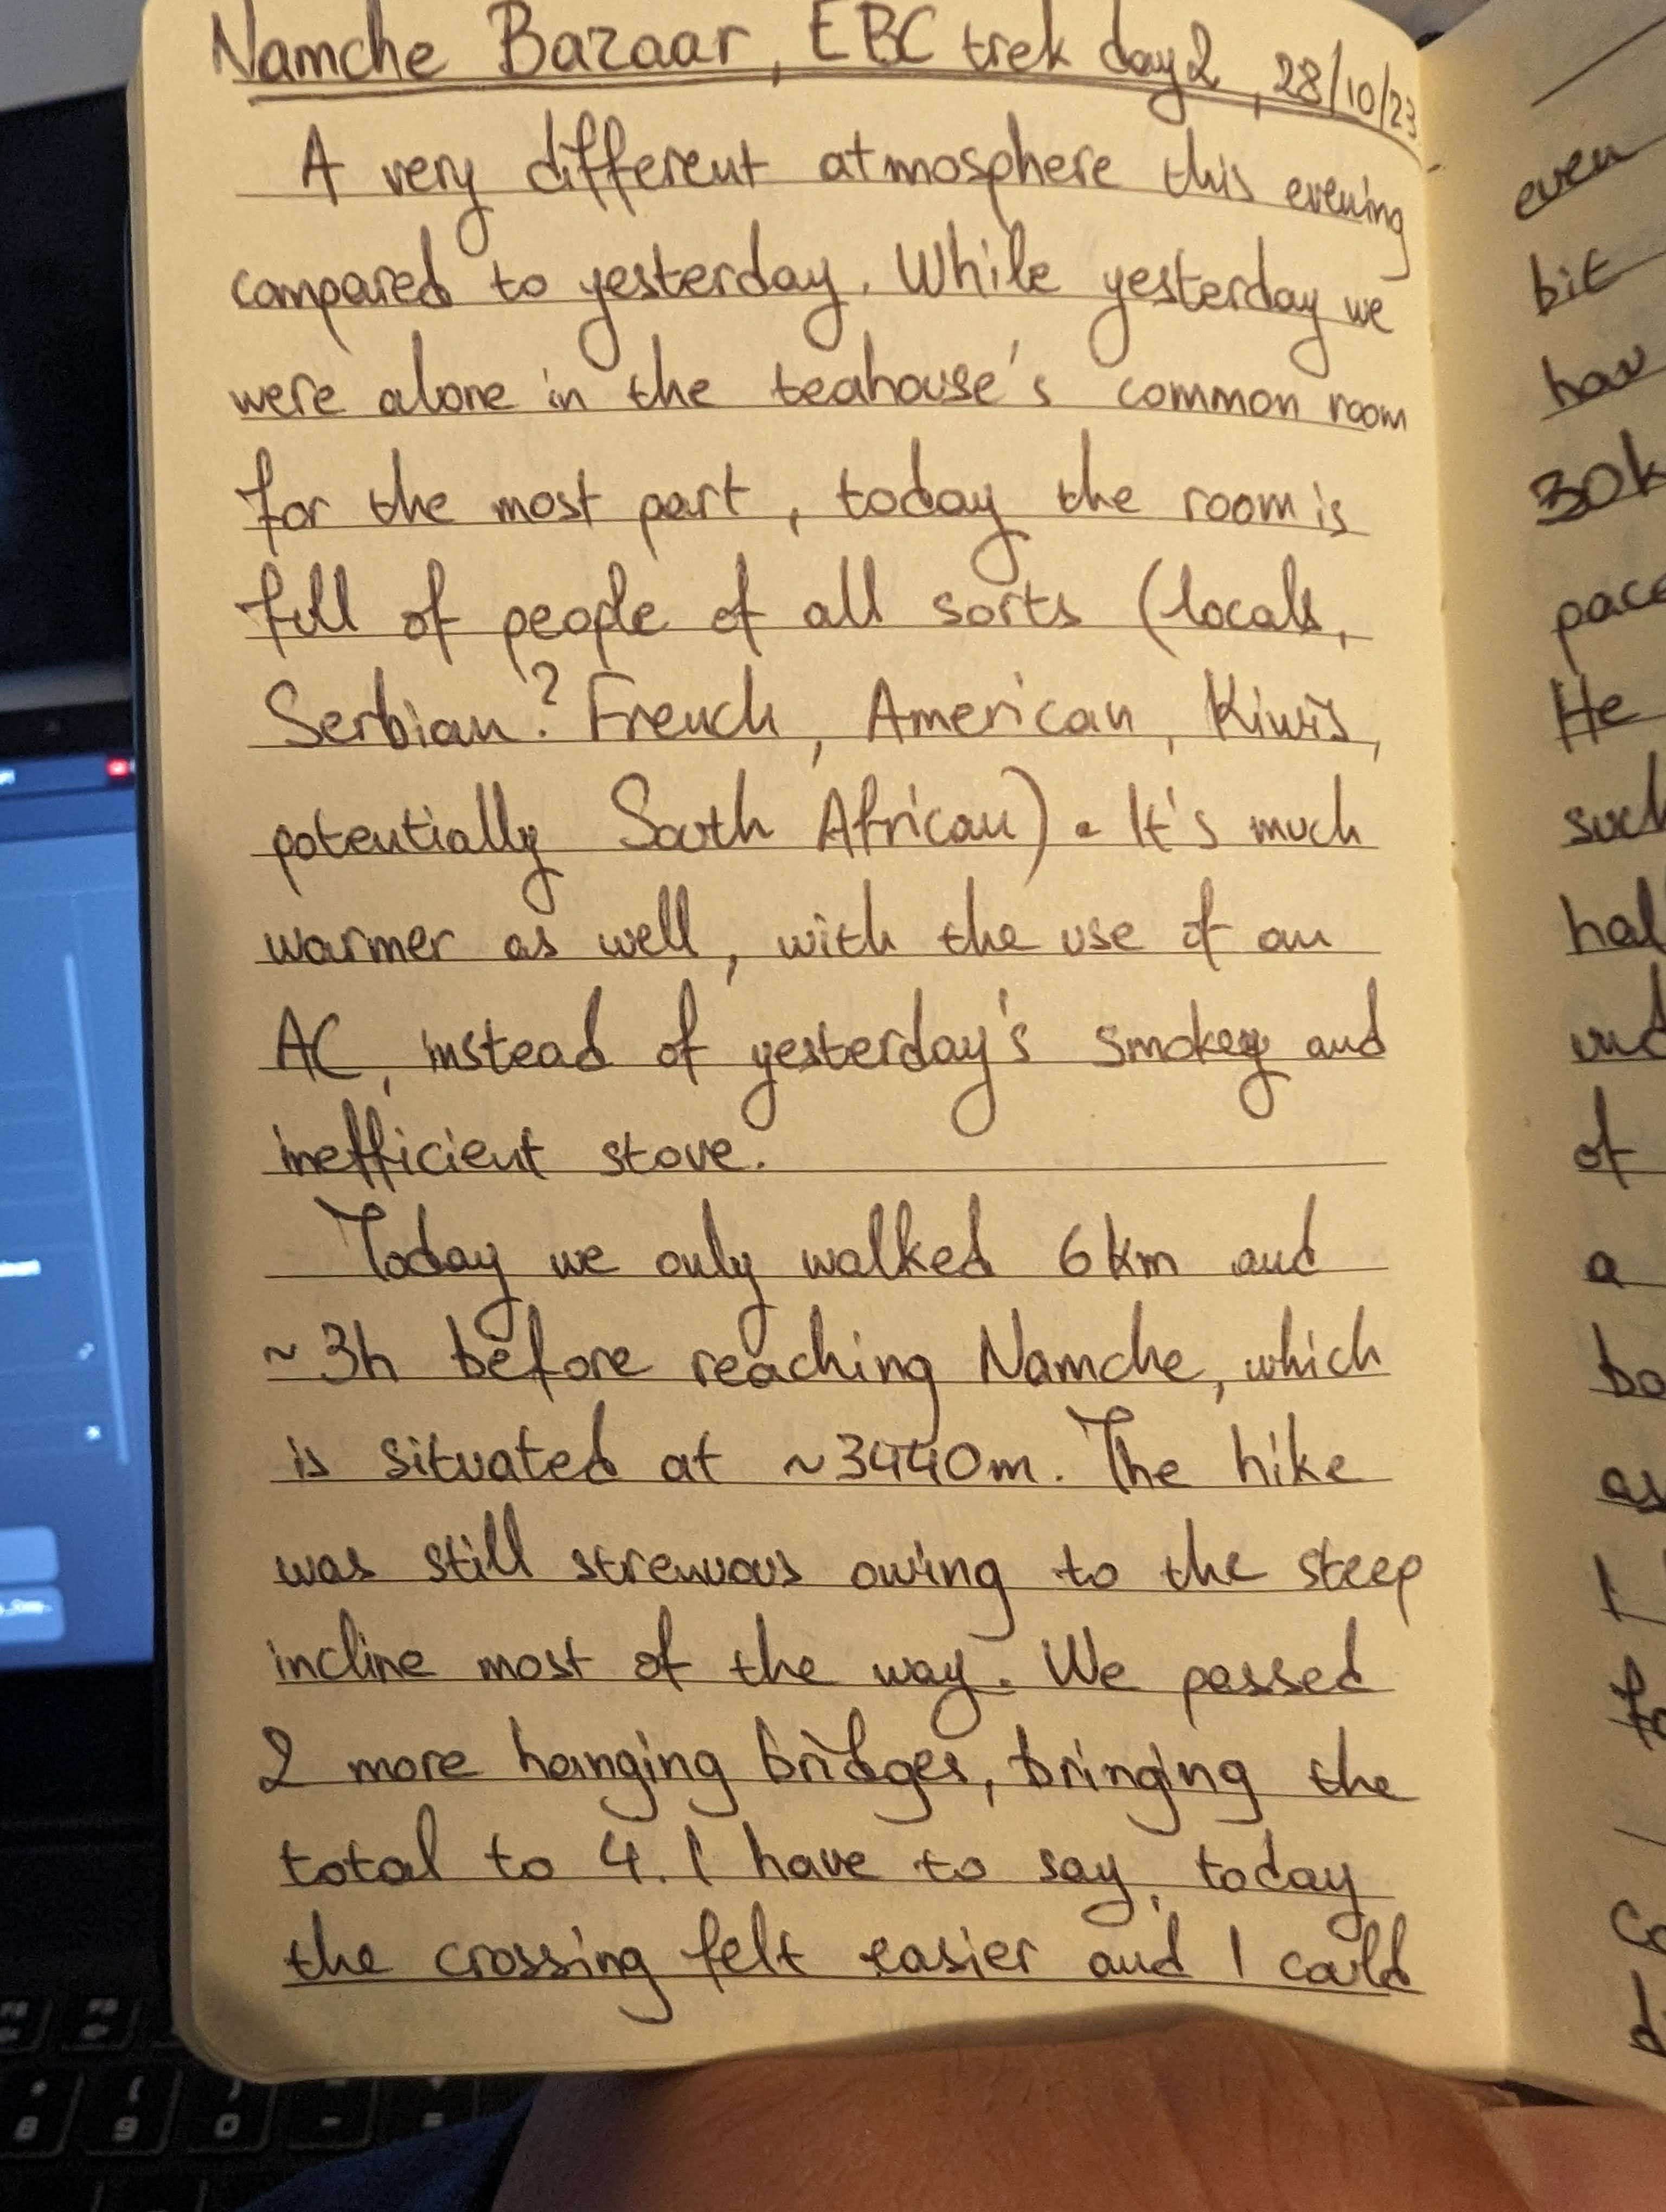 Namche Bazaar, EBC trek day 2, 28/10/23
A very different atmosphere this evening
compared to yesterday. While yesterday we
were alone in the teahouse's common room
for the most part, today the room is
full of people of all sorts (locals,
Serbian? French, American, Kiwis,
potentially South African). It's much
warmer as well, with the use of an
AC, instead of yesterday's smokey and
inefficient stove.
Today we only walked 6km and
~3h before reaching Namche, which
is situated at ~3440m. The hike
was still strenuous owing to the steep
incline most of the way. We passed
2 more hanging bridges, bringing the
total to 4. I have to say, today
the crossing felt easier and I could
even
bit
30k
pace
He
such
of
a
as
I
8
9
0